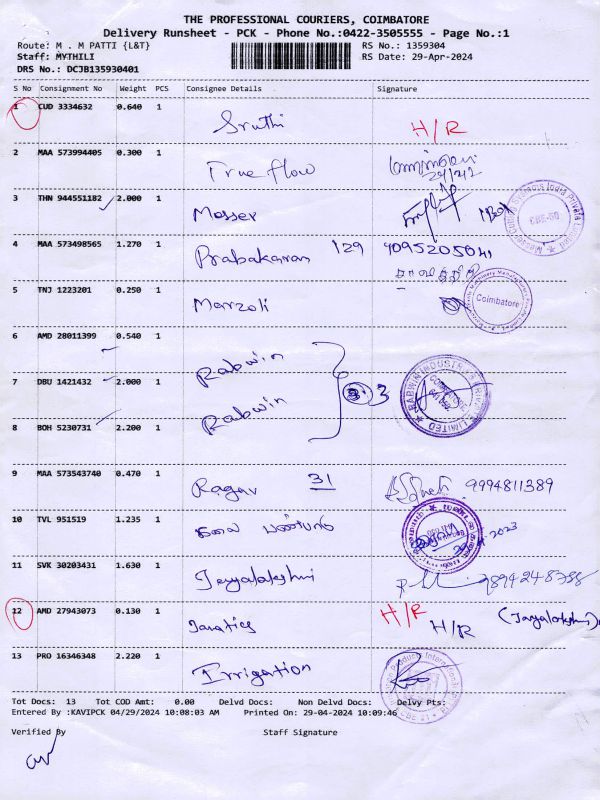 THE PROFESSIONAL COURIERS, COIMBATORE
Delivery Runsheet - PCK - Phone No.:0422-3505555 - Page No.:1
Route: M . M PATTI {L&T} RS No.: 1359304
Staff: MYTHILI RS Date: 29-Apr-2024
DRS No.: DCJB135930401
S No Consignment No Weight PCS Consignee Details Signature
1 CUD 3334632 0.640 1 Sruthi H/R
2 MAA 573994405 0.300 1 True flow
3 THN 944551182 2.000 1 Messer
4 MAA 573498565 1.270 1 Prabakaran 129 9095205041
5 TNJ 1223201 0.250 1 Marzoli Coimbatore
6 AMD 28011399 0.540 1 Rabwin
7 DBU 1421432 2.000 1 Rabwin 3
8 BOH 5230731 2.200 1
9 MAA 573543740 0.470 1 Ragav 31 9994811389
10 TVL 951519 1.235 1
11 SVK 30203431 1.630 1 Jayalakshmi
12 AMD 27943073 0.130 1 H/R H/R (Jayalakshmi)
13 PRO 16346348 2.220 1 Irrigation
Tot Docs: 13 Tot COD Amt: 0.00 Delvd Docs: Non Delvd Docs: Delvy Pts:
Entered By :KAVIPCK 04/29/2024 10:08:03 AM Printed On: 29-04-2024 10:09:46
Verified By Staff Signature